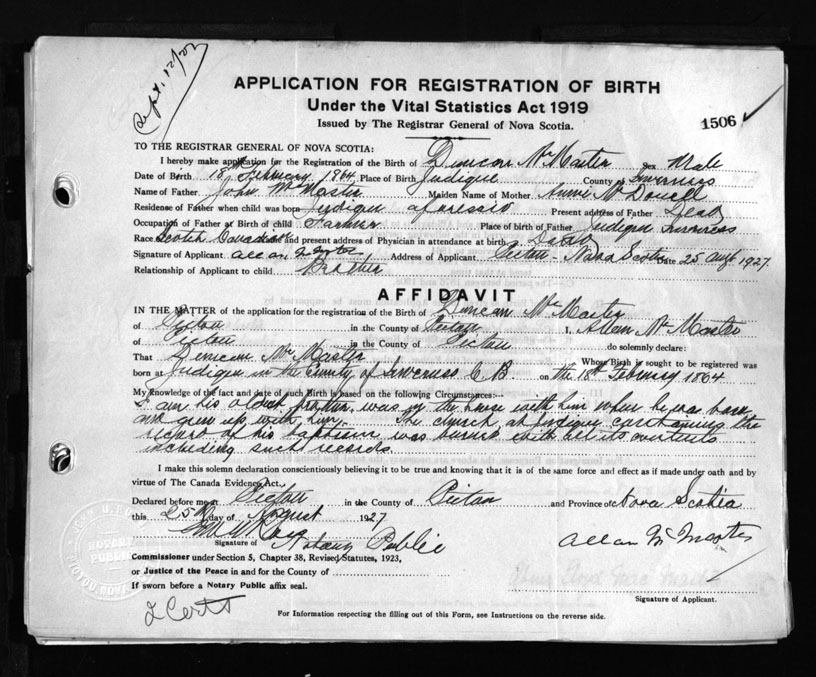 Sept. 12/27
APPLICATION FOR REGISTRATION OF BIRTH
Under the Vital Statistics Act 1919
Issued by The Registrar General of Nova Scotia.
1506
TO THE REGISTRAR GENERAL OF NOVA SCOTIA:
I hereby make application for the Registration of the Birth of Duncan McMaster Sex Male
Date of Birth 18 February 1864 Place of Birth Judique County of Inverness
Name of Father John McMaster Maiden Name of Mother Annie McDonell
Residence of Father when child was born Judique aforesaid Present address of Father Dead
Occupation of Father at Birth of child Farmer Place of birth of Father Judique Inverness
Race Scotch Canadian and present address of Physician in attendance at birth
Signature of Applicant Allan McMaster Address of Applicant Pictou - Nova Scotia Date 25 Augt 1927.
Relationship of Applicant to child Brother
AFFIDAVIT
IN THE MATTER of the application for the registration of the Birth of Duncan McMaster
of Pictou in the County of Pictou I, Allan McMaster
of Pictou in the County of Pictou do solemnly declare:
That Duncan McMaster Whose Birth is sought to be registered was
born at Judique in the County of Inverness C.B. on the 18th February 1864
My knowledge of the fact and date of such Birth is based on the following Circumstances:--
I am his oldest brother, was in the house with him when he was born
and grew up with him. The church at Judique containing the
record of his baptism was burned with all its contents
including such records.
I make this solemn declaration conscientiously believing it to be true and knowing that it is of the same force and effect as if made under oath and by
virtue of The Canada Evidence Act.
Declared before me at Pictou in the County of Pictou and Province of Nova Scotia
this 25th day of August 1927
Signature of Notary Public
Allan McMaster
Commissioner under Section 5, Chapter 38, Revised Statutes, 1923,
or Justice of the Peace in and for the County of
If sworn before a Notary Public affix seal.
Signature of Applicant.
2 Certs
For Information respecting the filling out of this Form, see Instructions on the reverse side.